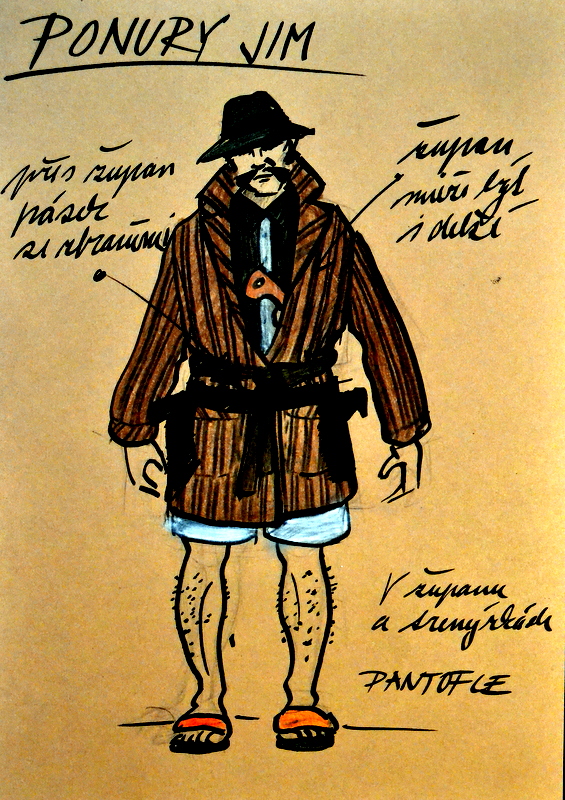 PONURY JIM
přes župan
pásek
se zbraněmi
župan,
může být
i delší
V županu
a trenýrkách
PANTOFLE